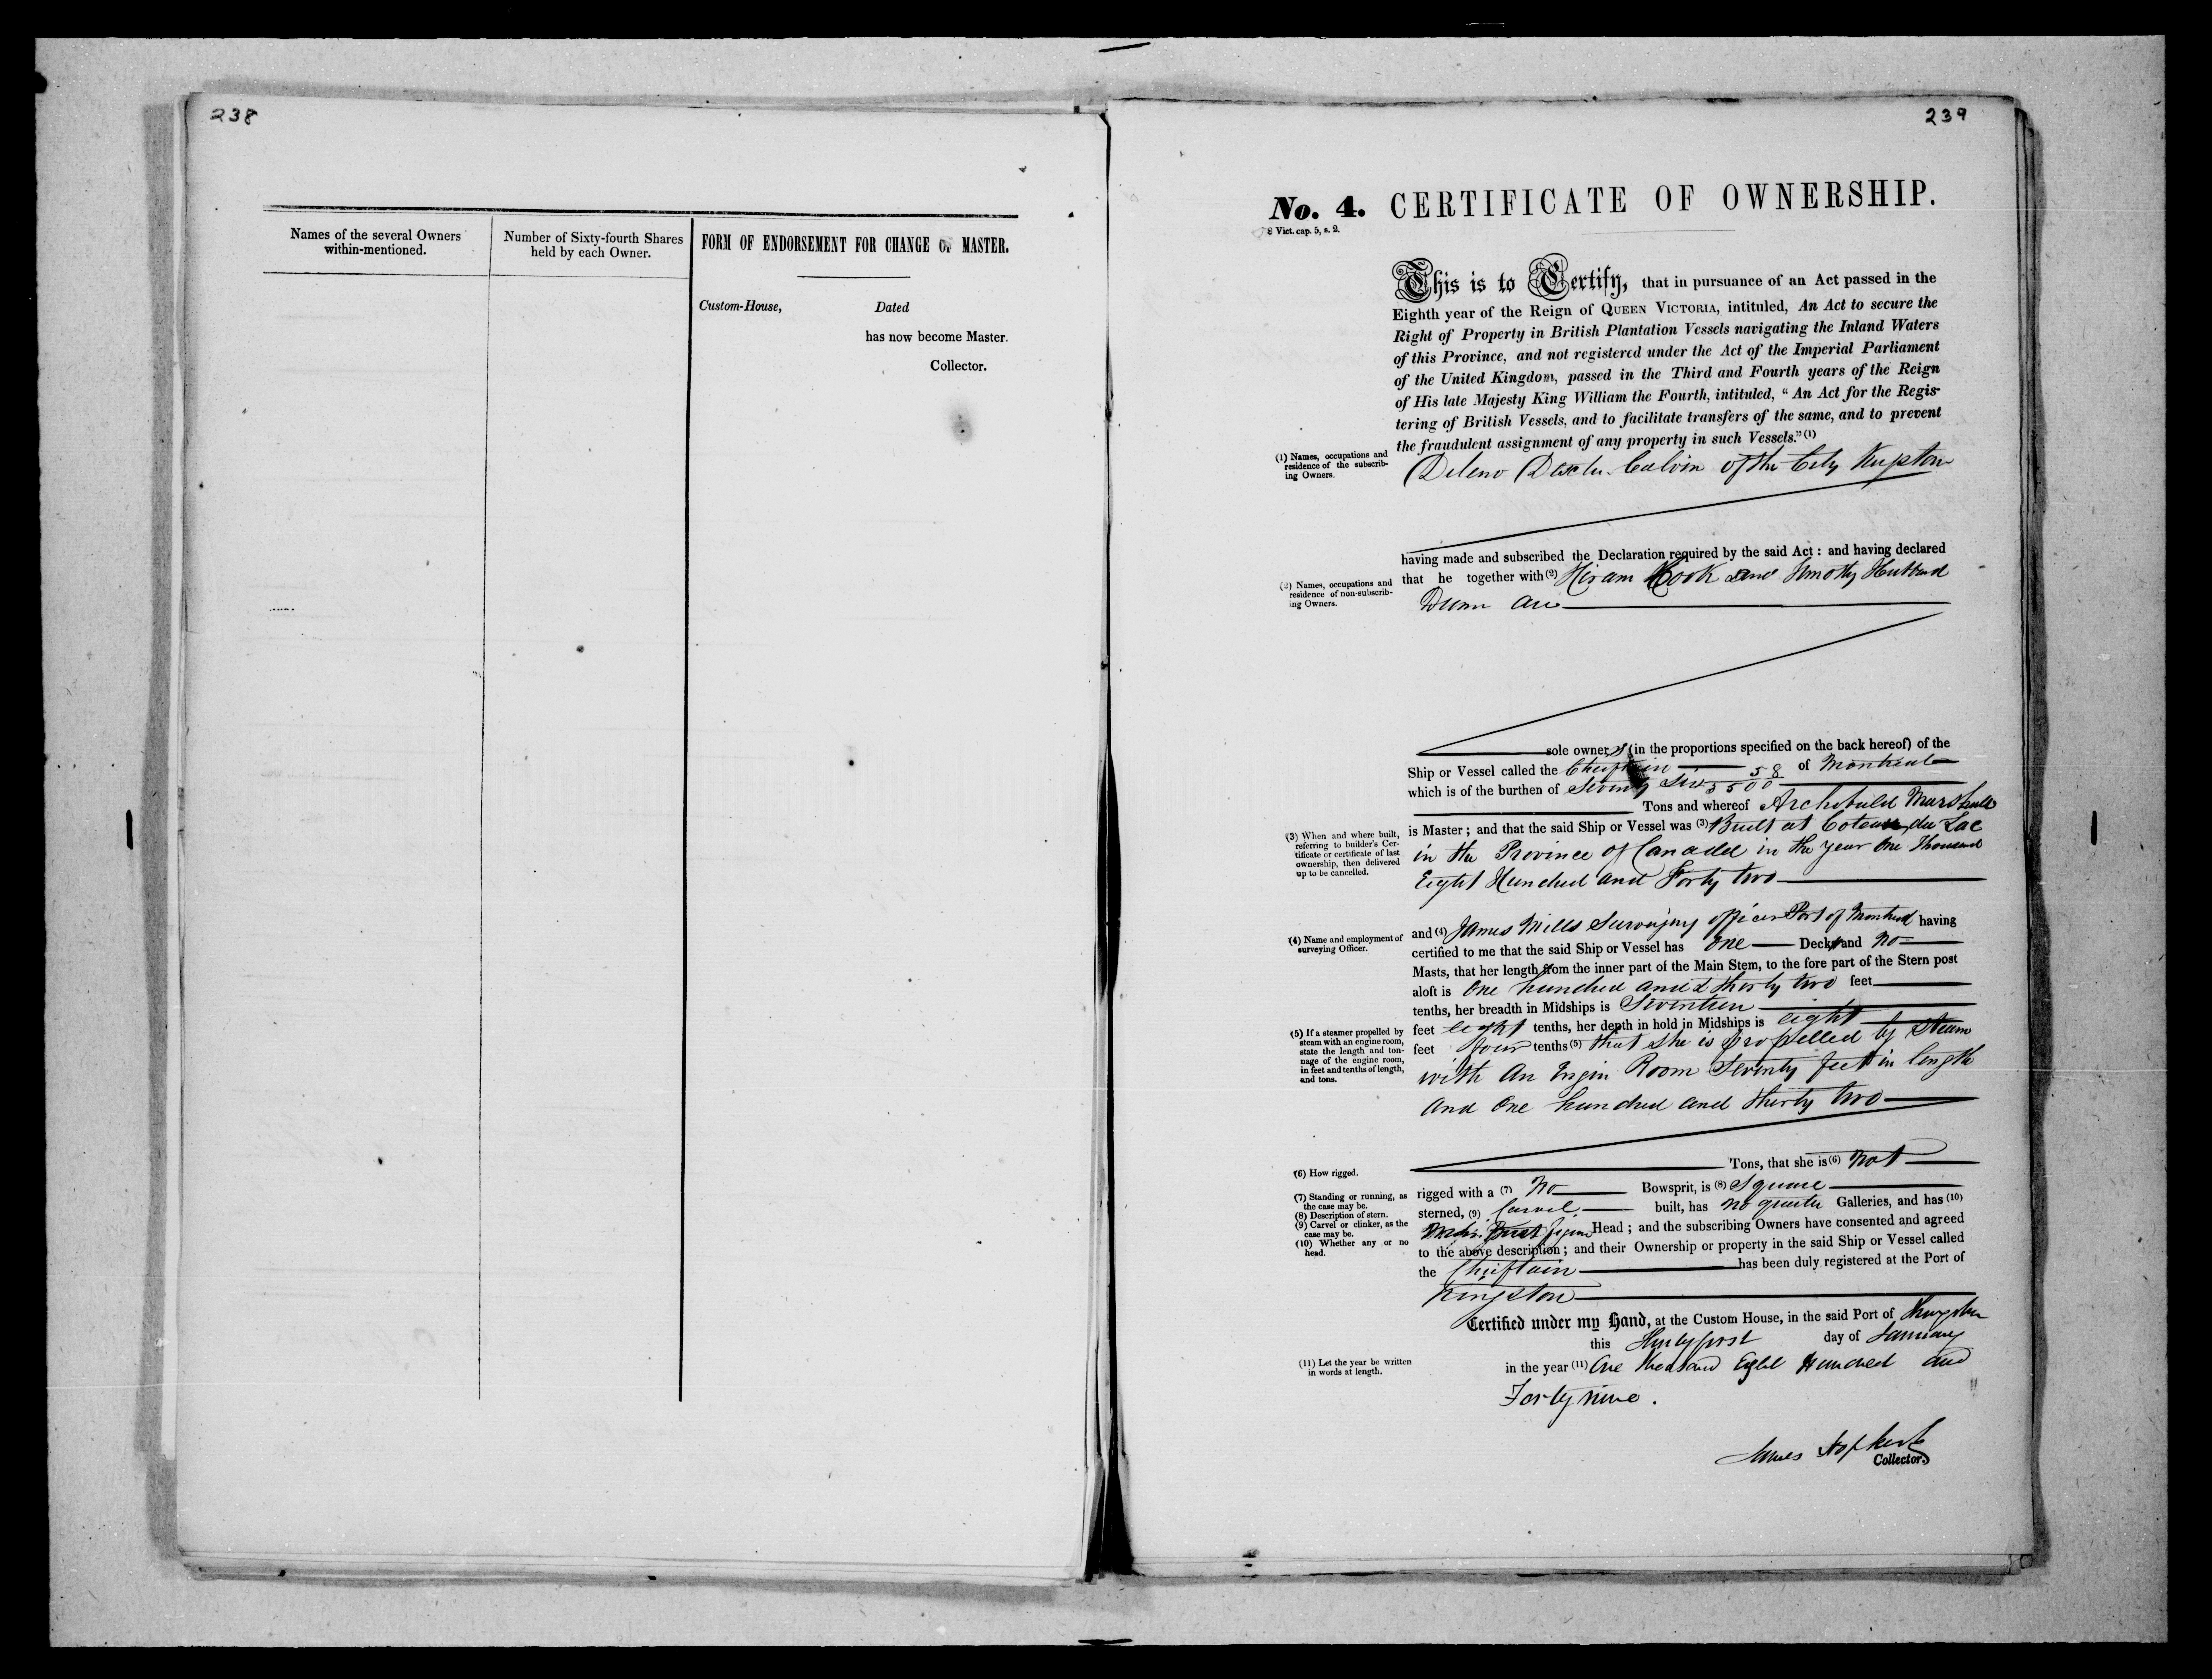 238
Names of the several Owners
within-mentioned.
Number of Sixty-fourth Shares
held by each Owner.
FORM OF ENDORSEMENT FOR CHANGE OF MASTER.
Custom-House, Dated
has now become Master.
Collector.
239
No. 4. CERTIFICATE OF OWNERSHIP.
8 Vict. cap. 5, s. 2.
This is to Certify, that in pursuance of an Act passed in the
Eighth year of the Reign of QUEEN VICTORIA, intituled, An Act to secure the
Right of Property in British Plantation Vessels navigating the Inland Waters
of this Province, and not registered under the Act of the Imperial Parliament
of the United Kingdom, passed in the Third and Fourth years of the Reign
of His late Majesty King William the Fourth, intituled, “ An Act for the Regis-
tering of British Vessels, and to facilitate transfers of the same, and to prevent
the fraudulent assignment of any property in such Vessels.” (1)
(1) Names, occupations and
residence of the subscrib-
ing Owners.
Deleno Dexter Calvin of the City Kingston
having made and subscribed the Declaration required by the said Act : and having declared
that he together with (2) Hiram Cook and Timothy Hubbard
(2) Names, occupations and
residence of non-subscrib-
ing Owners.
Dunn are
sole owners (in the proportions specified on the back hereof) of the
Ship or Vessel called the Chieftain of Montreal
which is of the burthen of Seventy Six 58/3500
Tons and whereof Archibald Marshall
(3) When and where built,
referring to builder's Cer-
tificate or certificate of last
ownership, then delivered
up to be cancelled.
is Master ; and that the said Ship or Vessel was (3) Built at Coteau du Lac
in the Province of Canada in the year One Thousand
Eight Hundred and Forty two
(4) Name and employment of
surveying Officer.
and (4) James Mills Surveying officer Port of Montreal having
certified to me that the said Ship or Vessel has One Deck and No
Masts, that her length from the inner part of the Main Stem, to the fore part of the Stern post
aloft is One hundred and thirty two feet
tenths, her breadth in Midships is Seventeen
feet eight tenths, her depth in hold in Midships is eight
feet four tenths (5) that she is propelled by Steam
(5) If a steamer propelled by
steam with an engine room,
state the length and ton-
nage of the engine room,
in feet and tenths of length,
and tons.
with An Engin Room Seventy feet in length
And One hundred and thirty two
Tons, that she is (6) not
(6) How rigged.
(7) Standing or running, as
the case may be.
(8) Description of stern.
(9) Carvel or clinker, as the
case may be.
(10) Whether any or no
head.
rigged with a (7) No Bowsprit, is (8) Square
sterned, (9) Carvel built, has no quarter Galleries, and has (10)
figure Head ; and the subscribing Owners have consented and agreed
to the above description ; and their Ownership or property in the said Ship or Vessel called
the Chieftain has been duly registered at the Port of
Kingston
Certified under my Hand, at the Custom House, in the said Port of Kingston
this Thirty first day of January
(11) Let the year be written
in words at length.
in the year (11) One thousand Eight Hundred and
Forty nine.
James Hopkirk
Collector.